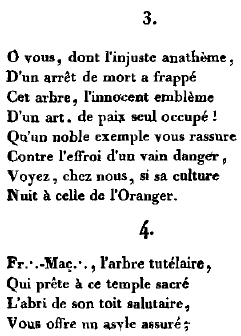 3.
O vous, dont l'injuste anathème,
D'un arrêt de mort a frappé
Cet arbre, l'innocent emblème
D'un art. de paix seul occupé !
Qu'un noble exemple vous rassure
Contre l'effroi d'un vain danger,
Voyez, chez nous, si sa culture
Nuit à celle de l'Oranger.
4.
Fr.·.-Maç.·., l'arbre tutélaire,
Qui prête à ce temple sacré
L'abri de son toit salutaire,
Vous offre un asyle assuré;